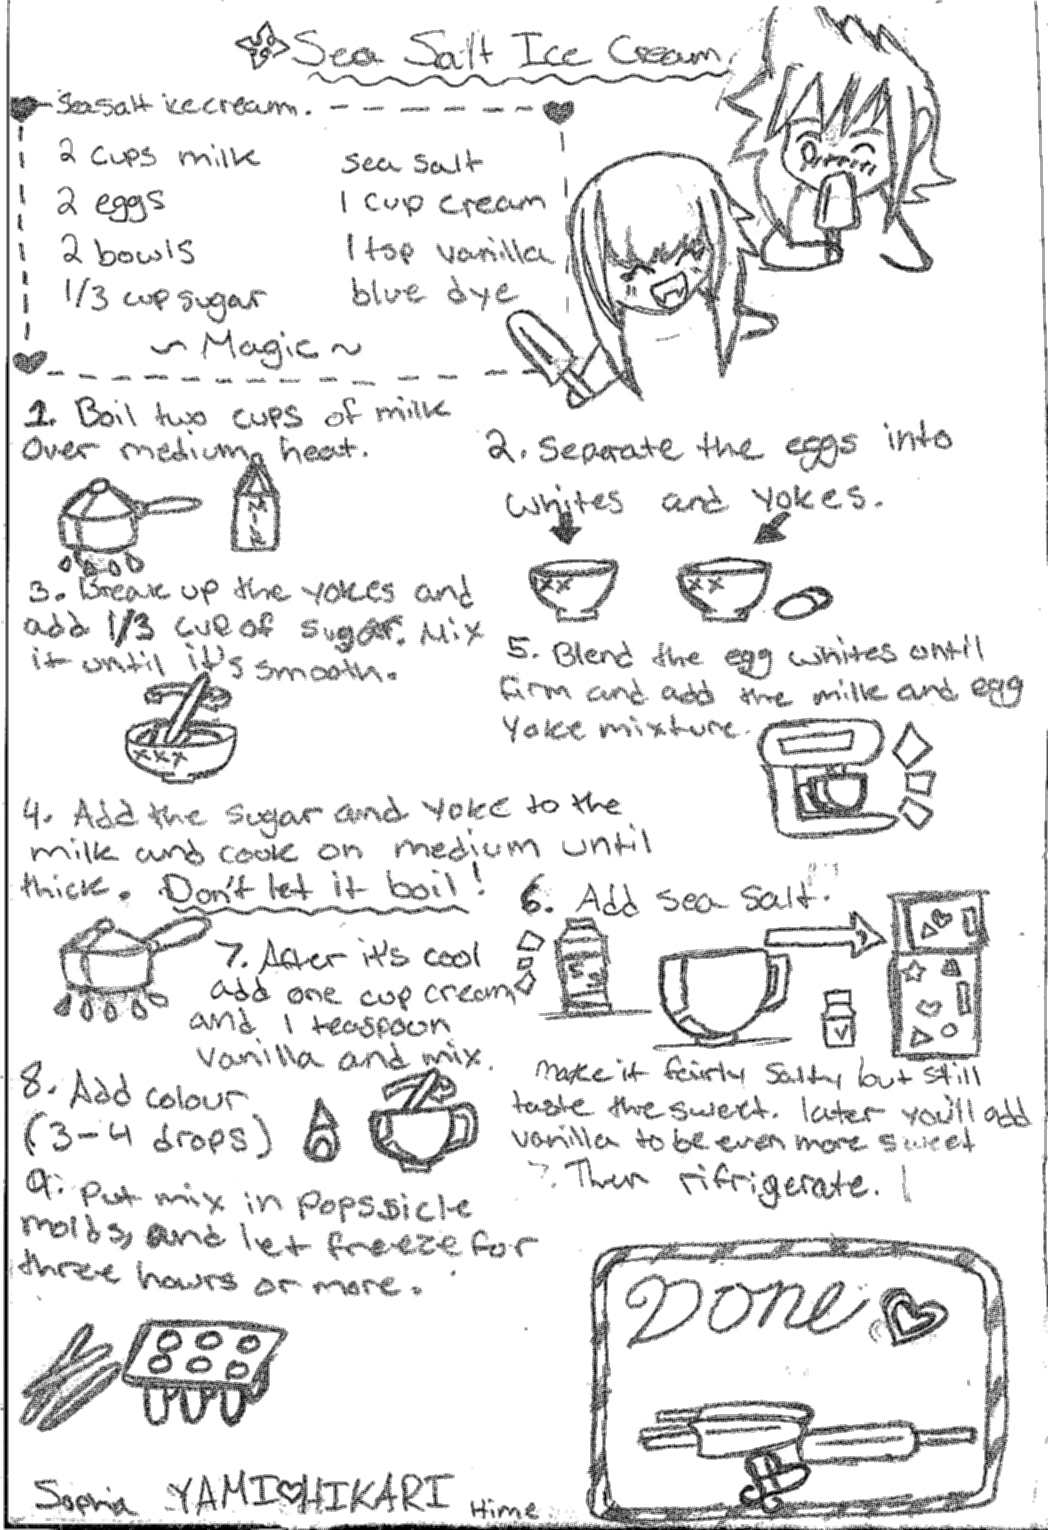 Sea Salt Ice Cream
Seasalt icecream.
2 cups milk
2 eggs
2 bowls
1/3 cup sugar
sea salt
1 cup cream
1 tsp vanilla
blue dye
~ Magic ~
1. Boil two cups of milk
Over medium heat.
MILK
2. Separate the eggs into
whites and yokes.
3. Break up the yokes and
add 1/3 cup of sugar. Mix
it until it's smooth.
4. Add the sugar and yoke to the
milk and cook on medium until
thick. Don't let it boil!
5. Blend the egg whites until
firm and add the milk and egg
yoke mixture.
6. Add sea salt.
make it fairly salty but still
taste the sweet. later you'll add
vanilla to be even more sweet
7. Then rifrigerate.
7. After it's cool
add one cup cream
and 1 teaspoon
vanilla and mix.
V
8. Add colour
(3-4 drops)
9. put mix in popssicle
molds, and let freeze for
three hours or more.
Done
Sophia YAMI♡HIKARI Hime